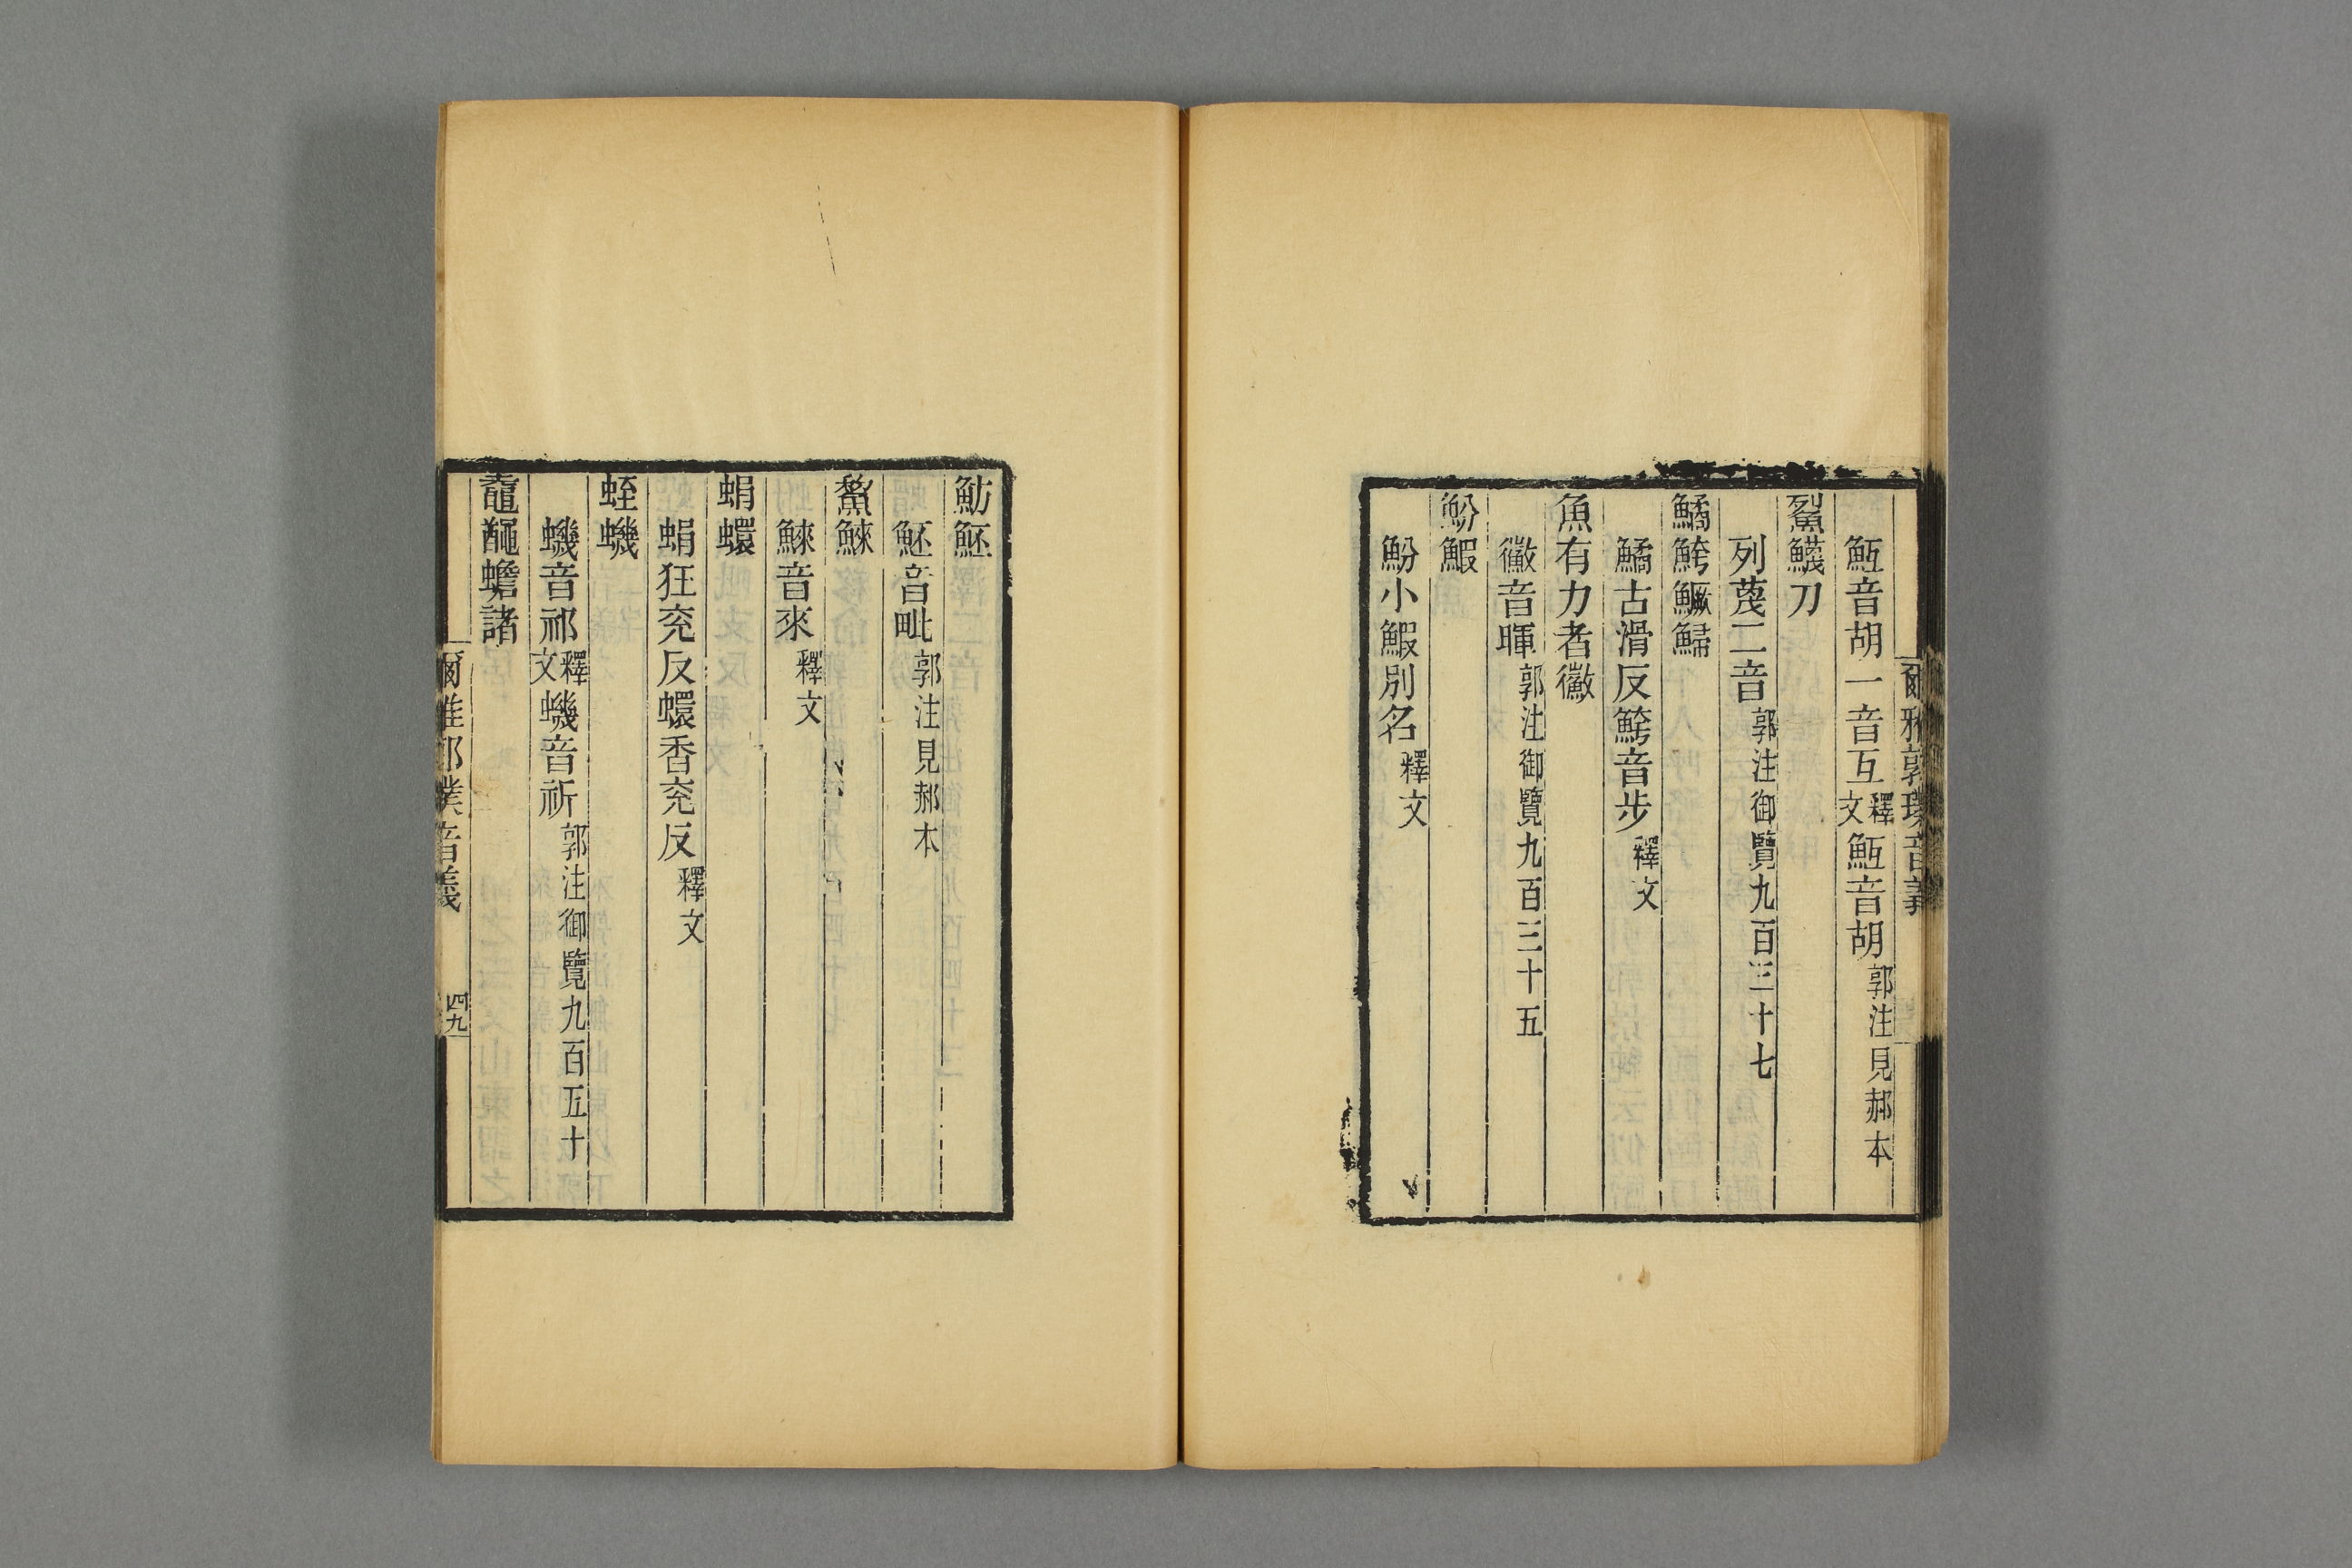 爾雅郭璞音義
䱍音胡一音互釋文䱍音胡郭注見郝本
鮤鱴刀
列蔑二音郭注御覽九百三十七
鱊鮬鱖鯞
鱊古滑反鮬音步釋文
魚有力者鰴
鰴音暉郭注御覽九百三十五
魵鰕
魵小鰕別名釋文
魴魾
魾音毗郭注見郝本
鯬鯠
鯠音來釋文
蜎蠉
蜎狂兖反蠉香兖反釋文
蛭蟣
蟣音祁釋文蟣音祈郭注御覽九百五十
鼁𪓰蟾諸
爾雅郭璞音義
四九